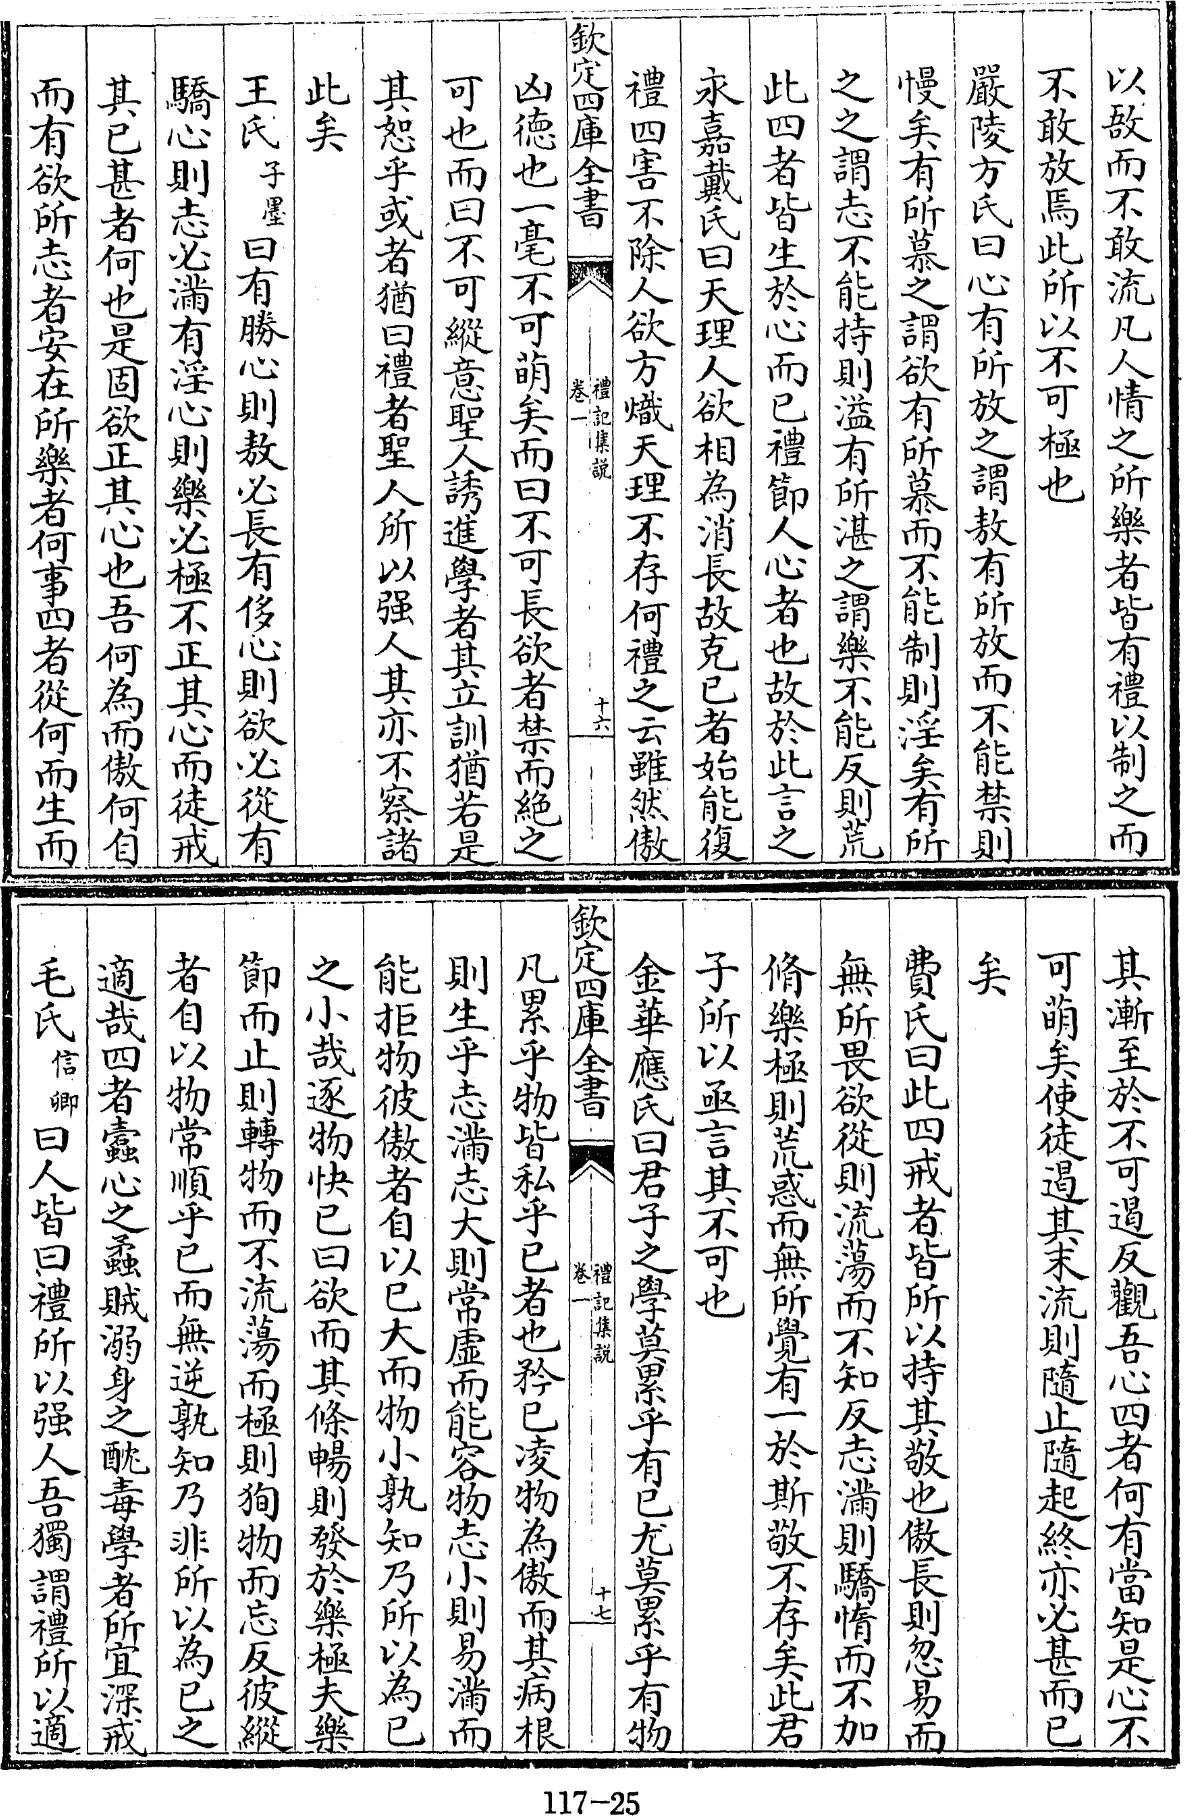 以敖而不敢流凡人情之所樂者皆有禮以制之而
不敢放焉此所以不可極也
嚴陵方氏曰心有所放之謂敖有所放而不能禁則
慢矣有所慕之謂欲有所慕而不能制則淫矣有所
之之謂志不能持則溢有所湛之謂樂不能反則荒
此四者皆生於心而已禮節人心者也故於此言之
永嘉戴氏曰天理人欲相為消長故克已者始能復
禮四害不除人欲方熾天理不存何禮之云雖然傲
欽定四庫全書
禮記集説
卷一
十六
凶德也一毫不可萌矣而曰不可長欲者禁而絶之
可也而曰不可縱意聖人誘進學者其立訓猶若是
其恕乎或者猶曰禮者聖人所以强人其亦不察諸
此矣
王氏子墨曰有勝心則敖必長有侈心則欲必從有
驕心則志必滿有淫心則樂必極不正其心而徒戒
其已甚者何也是固欲正其心也吾何為而傲何自
而有欲所志者安在所樂者何事四者從何而生而
其漸至於不可遏反觀吾心四者何有當知是心不
可萌矣使徒遏其末流則隨止隨起終亦必甚而已
矣
費氏曰此四戒者皆所以持其敬也傲長則忽易而
無所畏欲從則流蕩而不知反志滿則驕惰而不加
脩樂極則荒惑而無所覺有一於斯敬不存矣此君
子所以亟言其不可也
金華應氏曰君子之學莫累乎有已尤莫累乎有物
欽定四庫全書
禮記集説
卷一
十七
凡累乎物皆私乎已者也矜已凌物為傲而其病根
則生乎志滿志大則常虛而能容物志小則易滿而
能拒物彼傲者自以已大而物小孰知乃所以為已
之小哉逐物快已曰欲而其條暢則發於樂極夫樂
節而止則轉物而不流蕩而極則狥物而忘反彼縱
者自以物常順乎已而無逆孰知乃非所以為已之
適哉四者蠧心之蟊賊溺身之酖毒學者所宜深戒
毛氏信卿曰人皆曰禮所以强人吾獨謂禮所以適
117-25